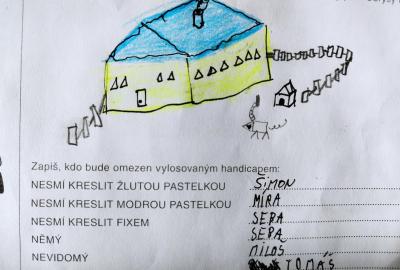 Zapiš, kdo bude omezen vylosovaným handicapem:
NESMÍ KRESLIT ŽLUTOU PASTELKOU ŠIMON
NESMÍ KRESLIT MODROU PASTELKOU MÍRA
NESMÍ KRESLIT FIXEM SEBA
NĚMÝ SEBA
NEVIDOMÝ MILOŠ
TOMÁŠ